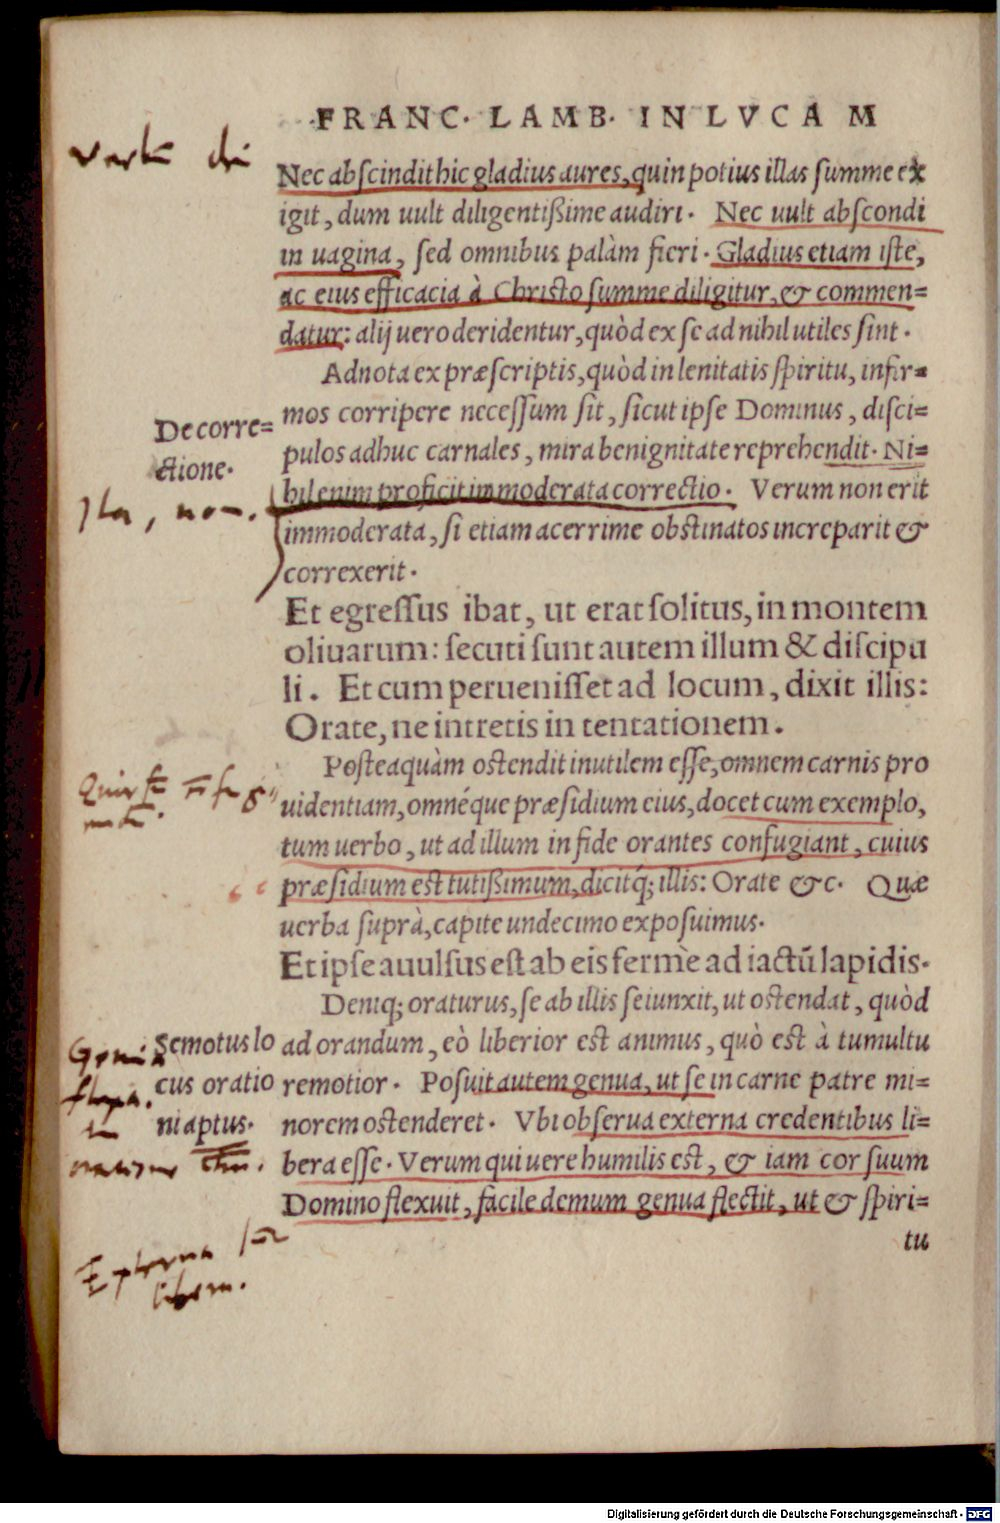 FRANC. LAMB. IN LVCAM
Nec abscindit hic gladius aures, quin potius illas summe ex
igit, dum uult diligentißime audiri. Nec uult abscondi
in uagina, sed omnibus palàm fieri. Gladius etiam iste,
ac eius efficacia à Christo summe diligitur, & commen=
datur: alij uero deridentur, quòd ex se ad nihil utiles sint.
Adnota ex præscriptis, quòd in lenitatis spiritu, infir=
mos corripere necessum sit, sicut ipse Dominus, disci=
De corre=
ctione.
pulos adhuc carnales, mira benignitate reprehendit. Ni=
hil enim proficit immoderata correctio. Verum non erit
immoderata, si etiam acerrime obstinatos increparit &
correxerit.
Et egressus ibat, ut erat solitus, in montem
oliuarum: secuti sunt autem illum & discipu
li. Et cum peruenisset ad locum, dixit illis:
Orate, ne intretis in tentationem.
Posteaquàm ostendit inutilem esse, omnem carnis pro
uidentiam, omnéque præsidium eius, docet cum exemplo,
tum uerbo, ut ad illum in fide orantes confugiant, cuius
præsidium est tutißimum, dicitq́; illis: Orate &c. Quæ
uerba suprà, capite undecimo exposuimus.
Et ipse auulsus est ab eis fermè ad iactū lapidis.
Deniq; oraturus, se ab illis seiunxit, ut ostendat, quòd
Semotus lo
cus oratio
ni aptus.
ad orandum, eò liberior est animus, quò est à tumultu
remotior. Posuit autem genua, ut se in carne patre mi=
norem ostenderet. Vbi obserua externa credentibus li=
bera esse. Verum qui uere humilis est, & iam cor suum
Domino flexuit, facile demum genua flectit, ut & spiri=
tu
Externa
libera.
Digitalisierung gefördert durch die Deutsche Forschungsgemeinschaft - DFG